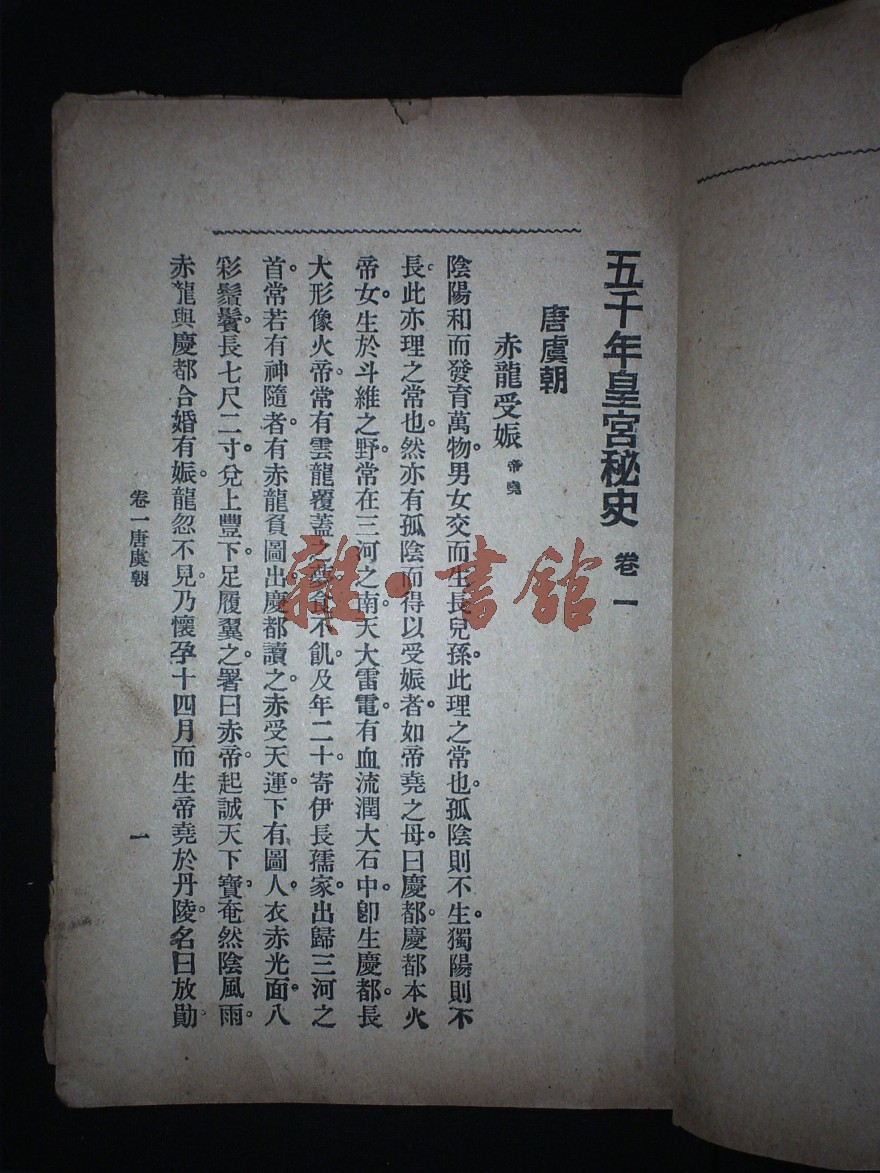 五千年皇宮秘史 卷一
唐虞朝
赤龍受娠 帝堯
陰陽和而發育萬物。男女交而生長兒孫。此理之常也。孤陰則不生。獨陽則不
長。此亦理之常也。然亦有孤陰而得以受娠者。如帝堯之母曰慶都。慶都本火
帝女。生於斗維之野。常在三河之南。天大雷電。有血流潤大石中。卽生慶都。長
大形像火帝。常有雲龍覆蓋之。食不飢。及年二十。寄伊長孺家。出歸三河之
首。常若有神隨者。有赤龍負圖出。慶都讀之。赤受天運。下有圖。人衣赤光。面八
彩。鬚鬢長七尺二寸。兌上豐下。足履翼之。署曰赤帝起誠天下寶。奄然陰風雨。
赤龍與慶都合婚有娠。龍忽不見。乃懷孕十四月而生帝堯於丹陵。名曰放勛
卷一唐虞朝
一
雜·書館